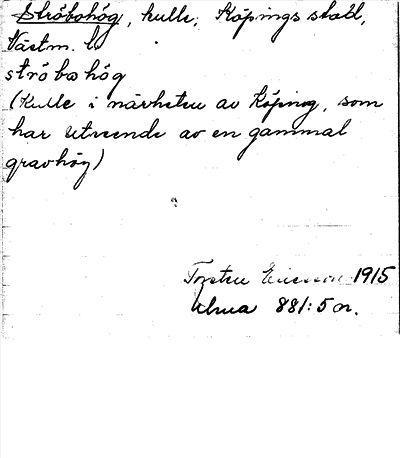 Ströbohög, kulle, Köpings stad,
Västm. l.
ströbohög
(Kulle i närheten av Köping, som
har utseende av en gammal
gravhög)
Torsten Ericsson 1915
Ulma 881:5 on.